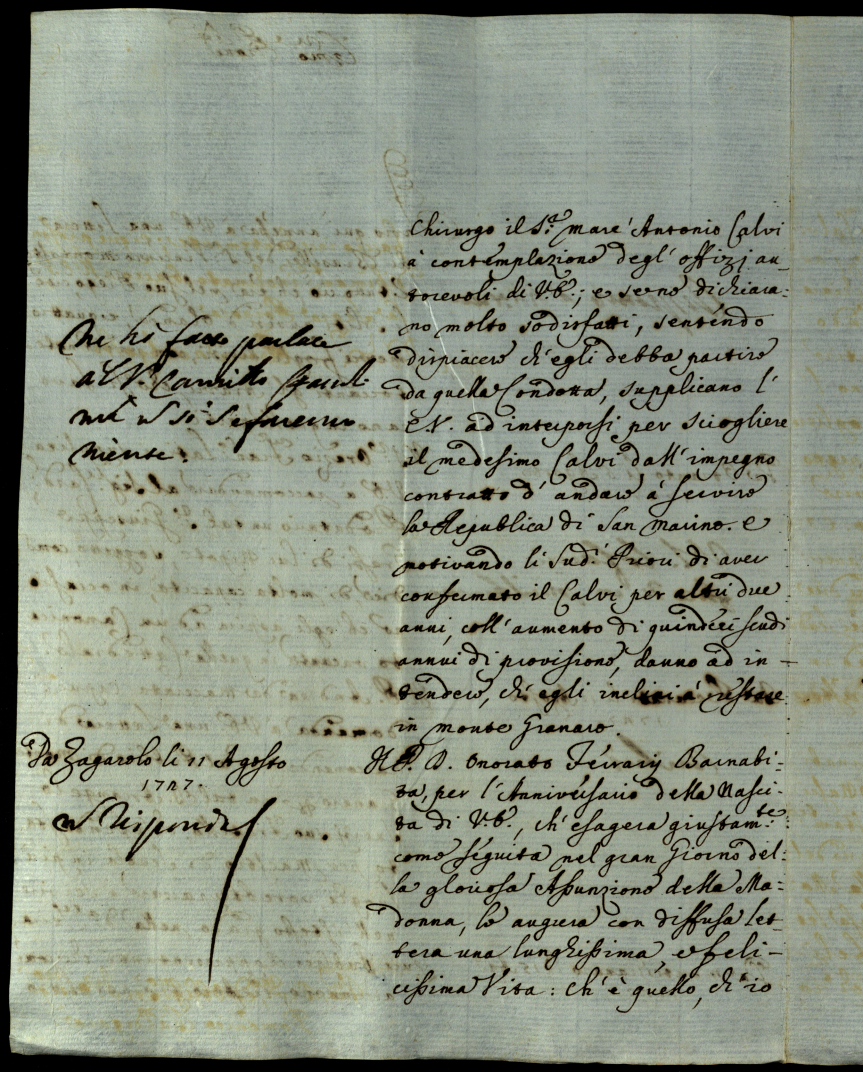 Chirurgo il S.r Marc'Antonio Calvi
à contemplazione degl'offizj au-
torevoli di V.E.; e se ne dichiara-
no molto sodisfatti, sentendo
dispiacere ch'egli debba partire
da quella Condotta, supplicano l'
E.V. ad interporsi per sciogliere
il medesimo Calvi dall'impegno
contratto d'andare à servire
la Republica di San Marino. e
motivando li Sud.i Priori di aver
confermato il Calvi per altri due
anni, coll'aumento di quindeci scudi
annui di provisione, danno ad in-
tendere, ch'egli inclini à restare
in Monte Granaro.
Ne hò fatto parlare
al S.r Camillo
mà si
niente.
Da Zagarolo li 11 Agosto
1727.
Risponde
Il P. D. Onorato Ferrarij Barnabi-
ta, per l'Anniversario della Nasci-
ta di V.E., ch'esagera giustam.te
come seguita nel gran Giorno del-
la gloriosa Assunzione della Ma-
donna, le augura con diffusa let-
tera una lunghissima, e feli-
cissima Vita: ch'è quello, ch'io